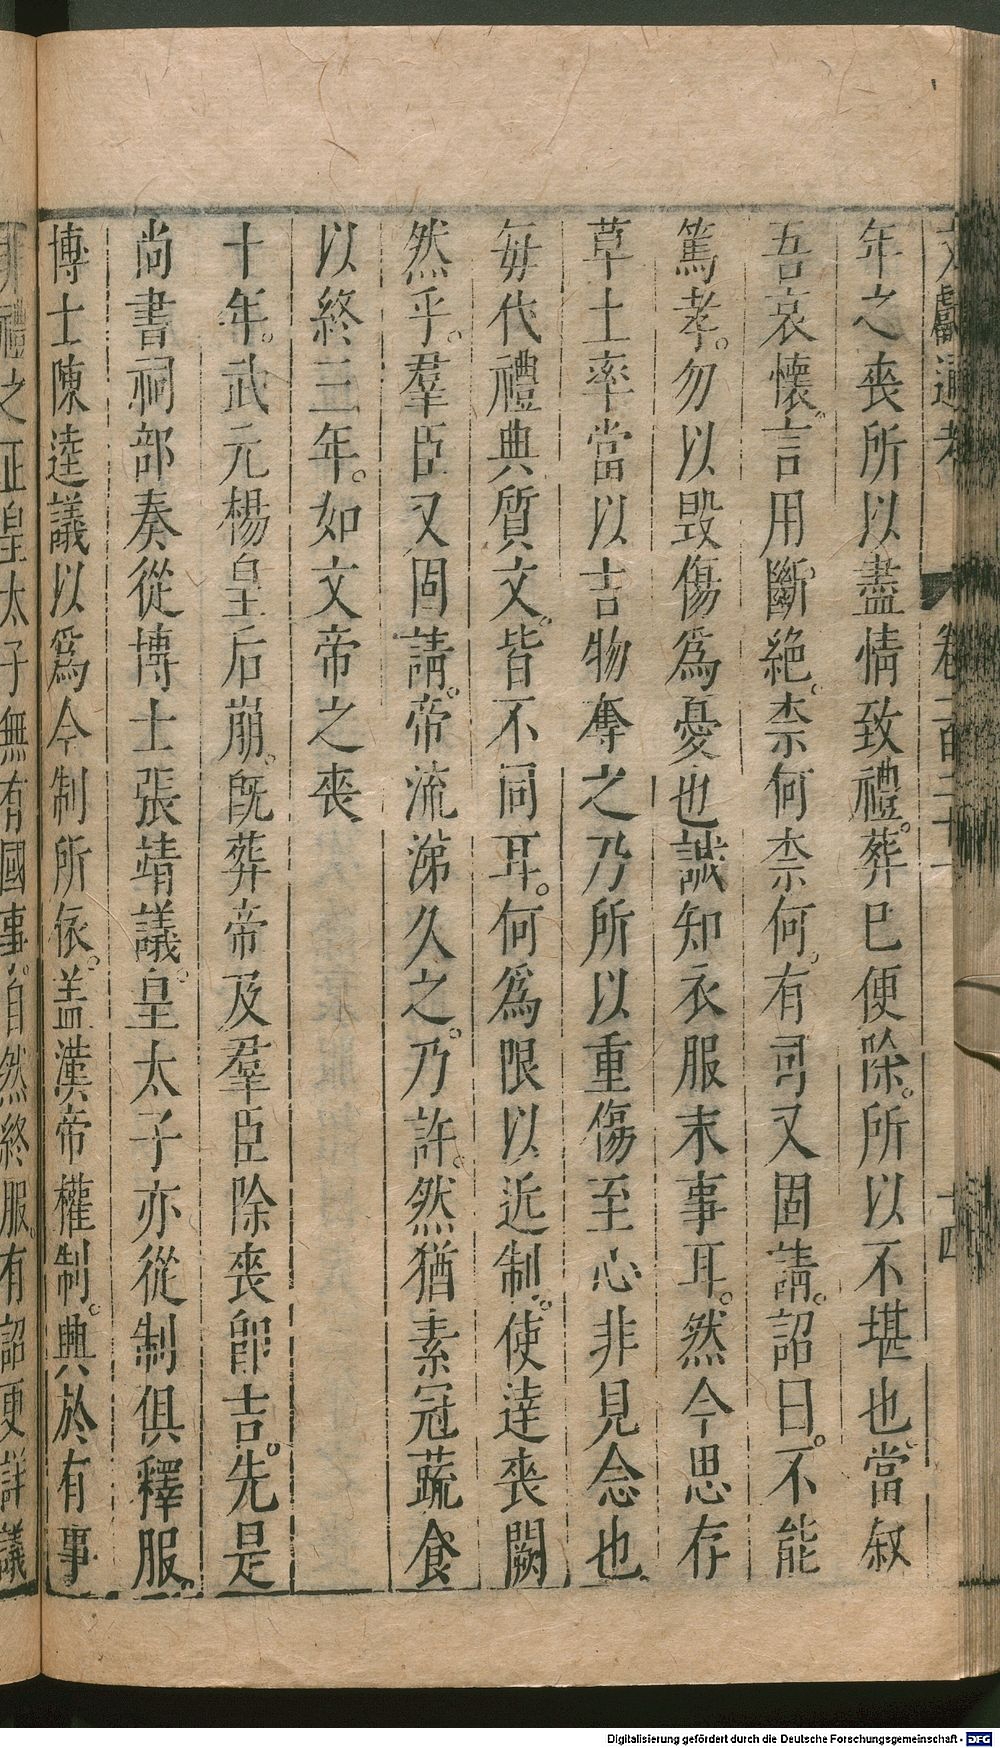 文獻通考 卷一百二十一 十四
年之喪所以盡情致禮。葬巳便除。所以不堪也。當叙
吾哀懷。言用斷絶。柰何柰何。有司又固請。詔曰。不能
篤孝。勿以毀傷爲憂也。誠知衣服末事耳。然今思存
草土率當以吉物奪之乃所以重傷至心非見念也
毎代禮典質文。皆不同耳。何爲限以近制。使達喪闕
然乎。羣臣又固請。帝流涕久之。乃許。然猶素冠蔬食
以終三年。如文帝之喪
十年。武元楊皇后崩。旣葬帝及羣臣除喪卽吉。先是
尚書祠部奏從博士張靖議。皇太子亦從制俱釋服。
博士陳逵議以爲今制所依。盖漢帝權制。興於有事
非禮之正皇太子無有國事。自然終服。有詔更詳議
Digitalisierung gefördert durch die Deutsche Forschungsgemeinschaft - DFG